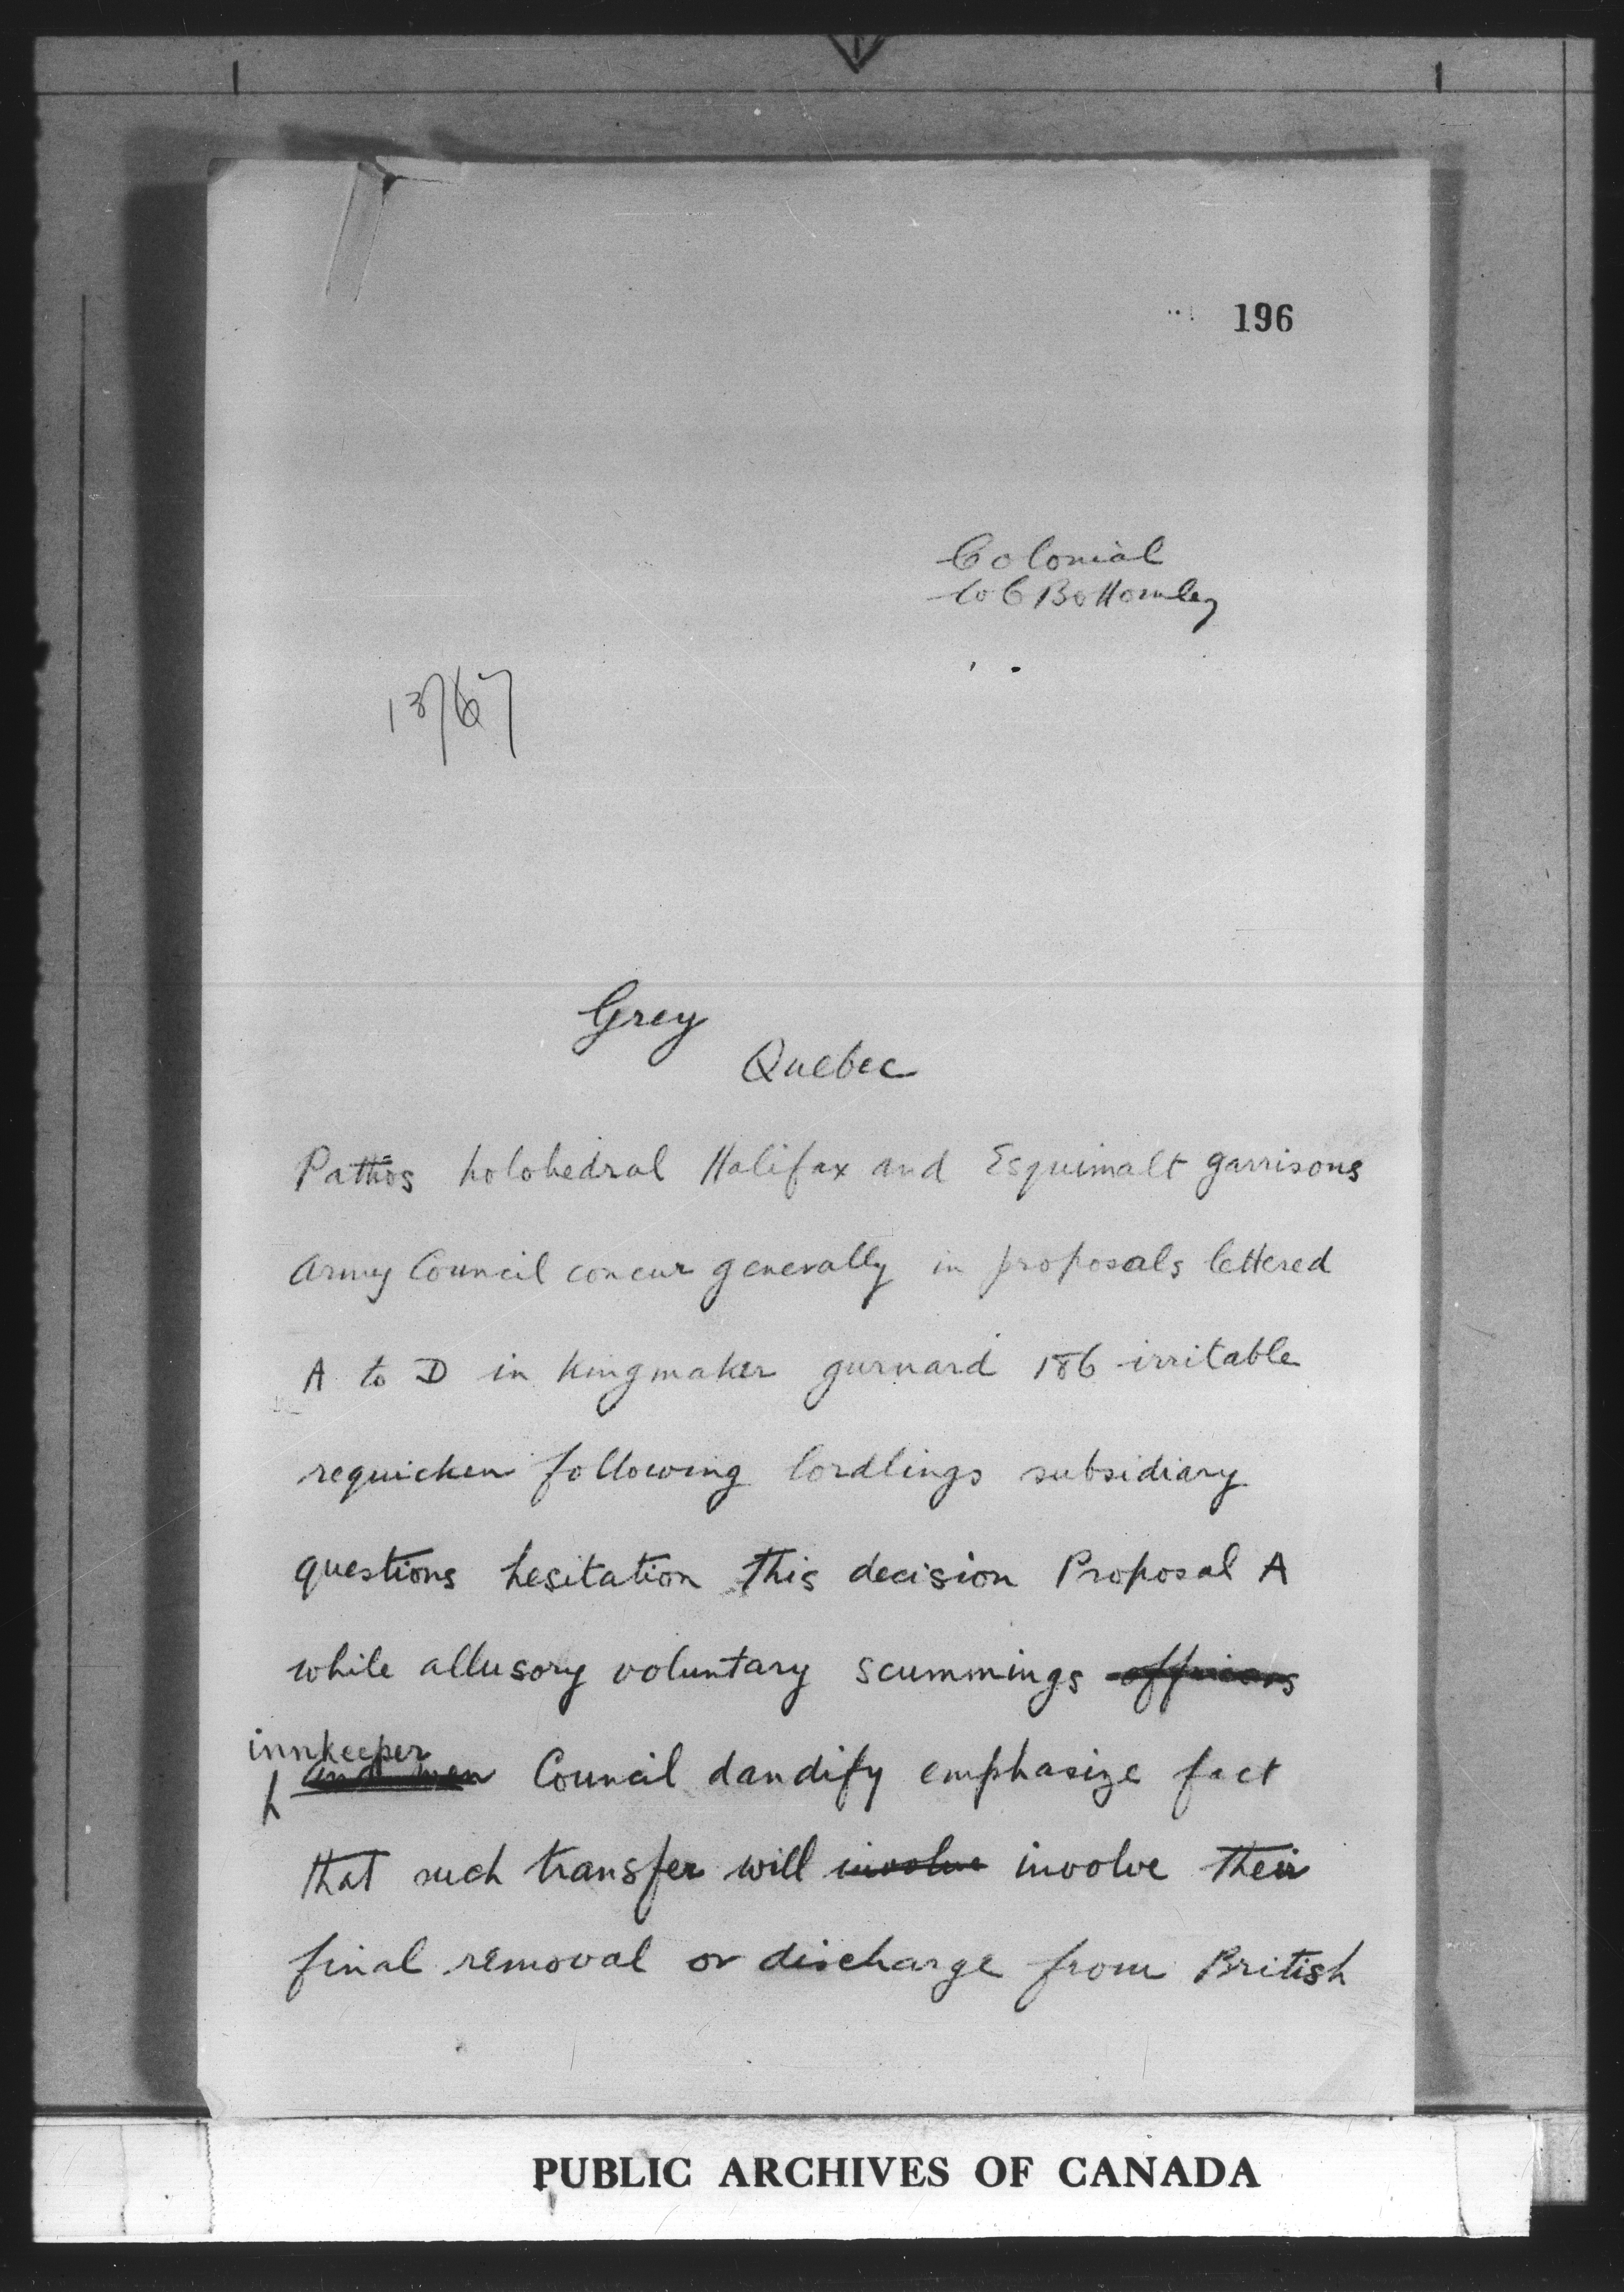 196
Colonial
W C Bottomley
13767
Grey
Quebec
Pathos holohedral Halifax and Esquimalt garrisons
Army Council concur generally in proposals lettered
A to D in kingmaker gurnard 186 irritable
requicken following lordlings subsidiary
questions hesitation this decision Proposal A
while allusory voluntary scummings officers
innkeeper
and men Council dandify emphasize fact
that such transfer will involve involve their
final removal or discharge from British
PUBLIC ARCHIVES OF CANADA